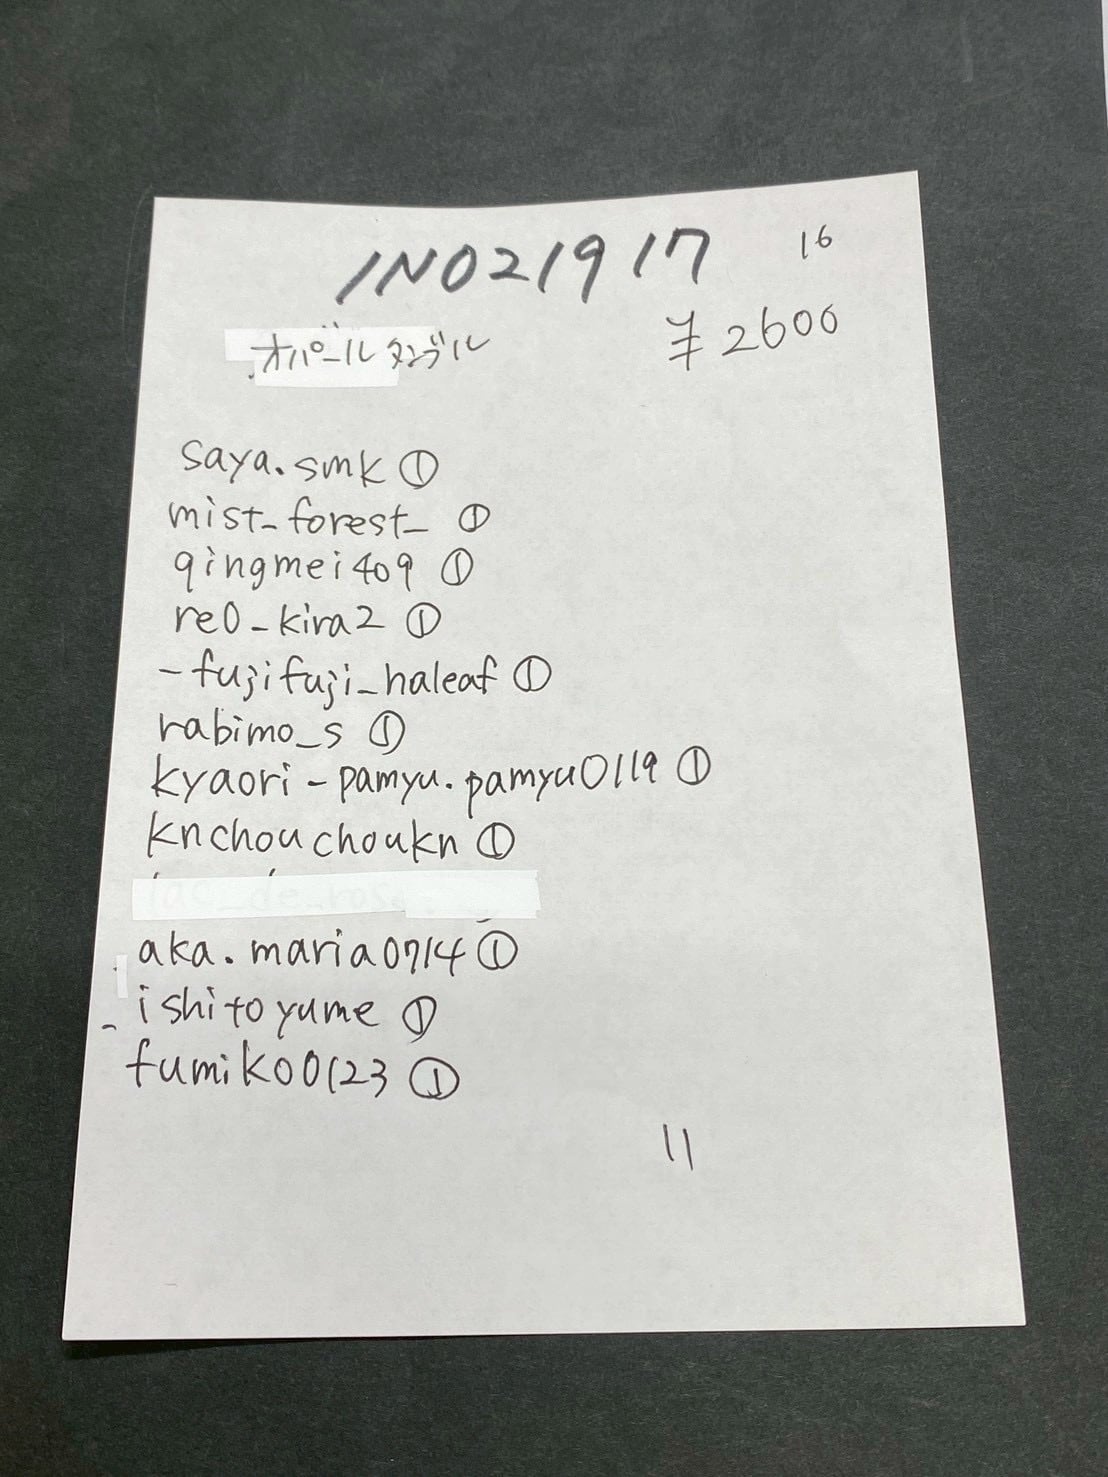 IN021917 16
オパールタンブル ¥2600
saya.smk ①
mist_forest_ ①
qingmei409 ①
re0_kira2 ①
-fujifuji_haleaf ①
rabimo_s ①
kyaori-pamyu.pamyu0119 ①
knchouchoukn ①
aka.maria0714 ①
_ishitoyume ①
fumiko0123 ①
11